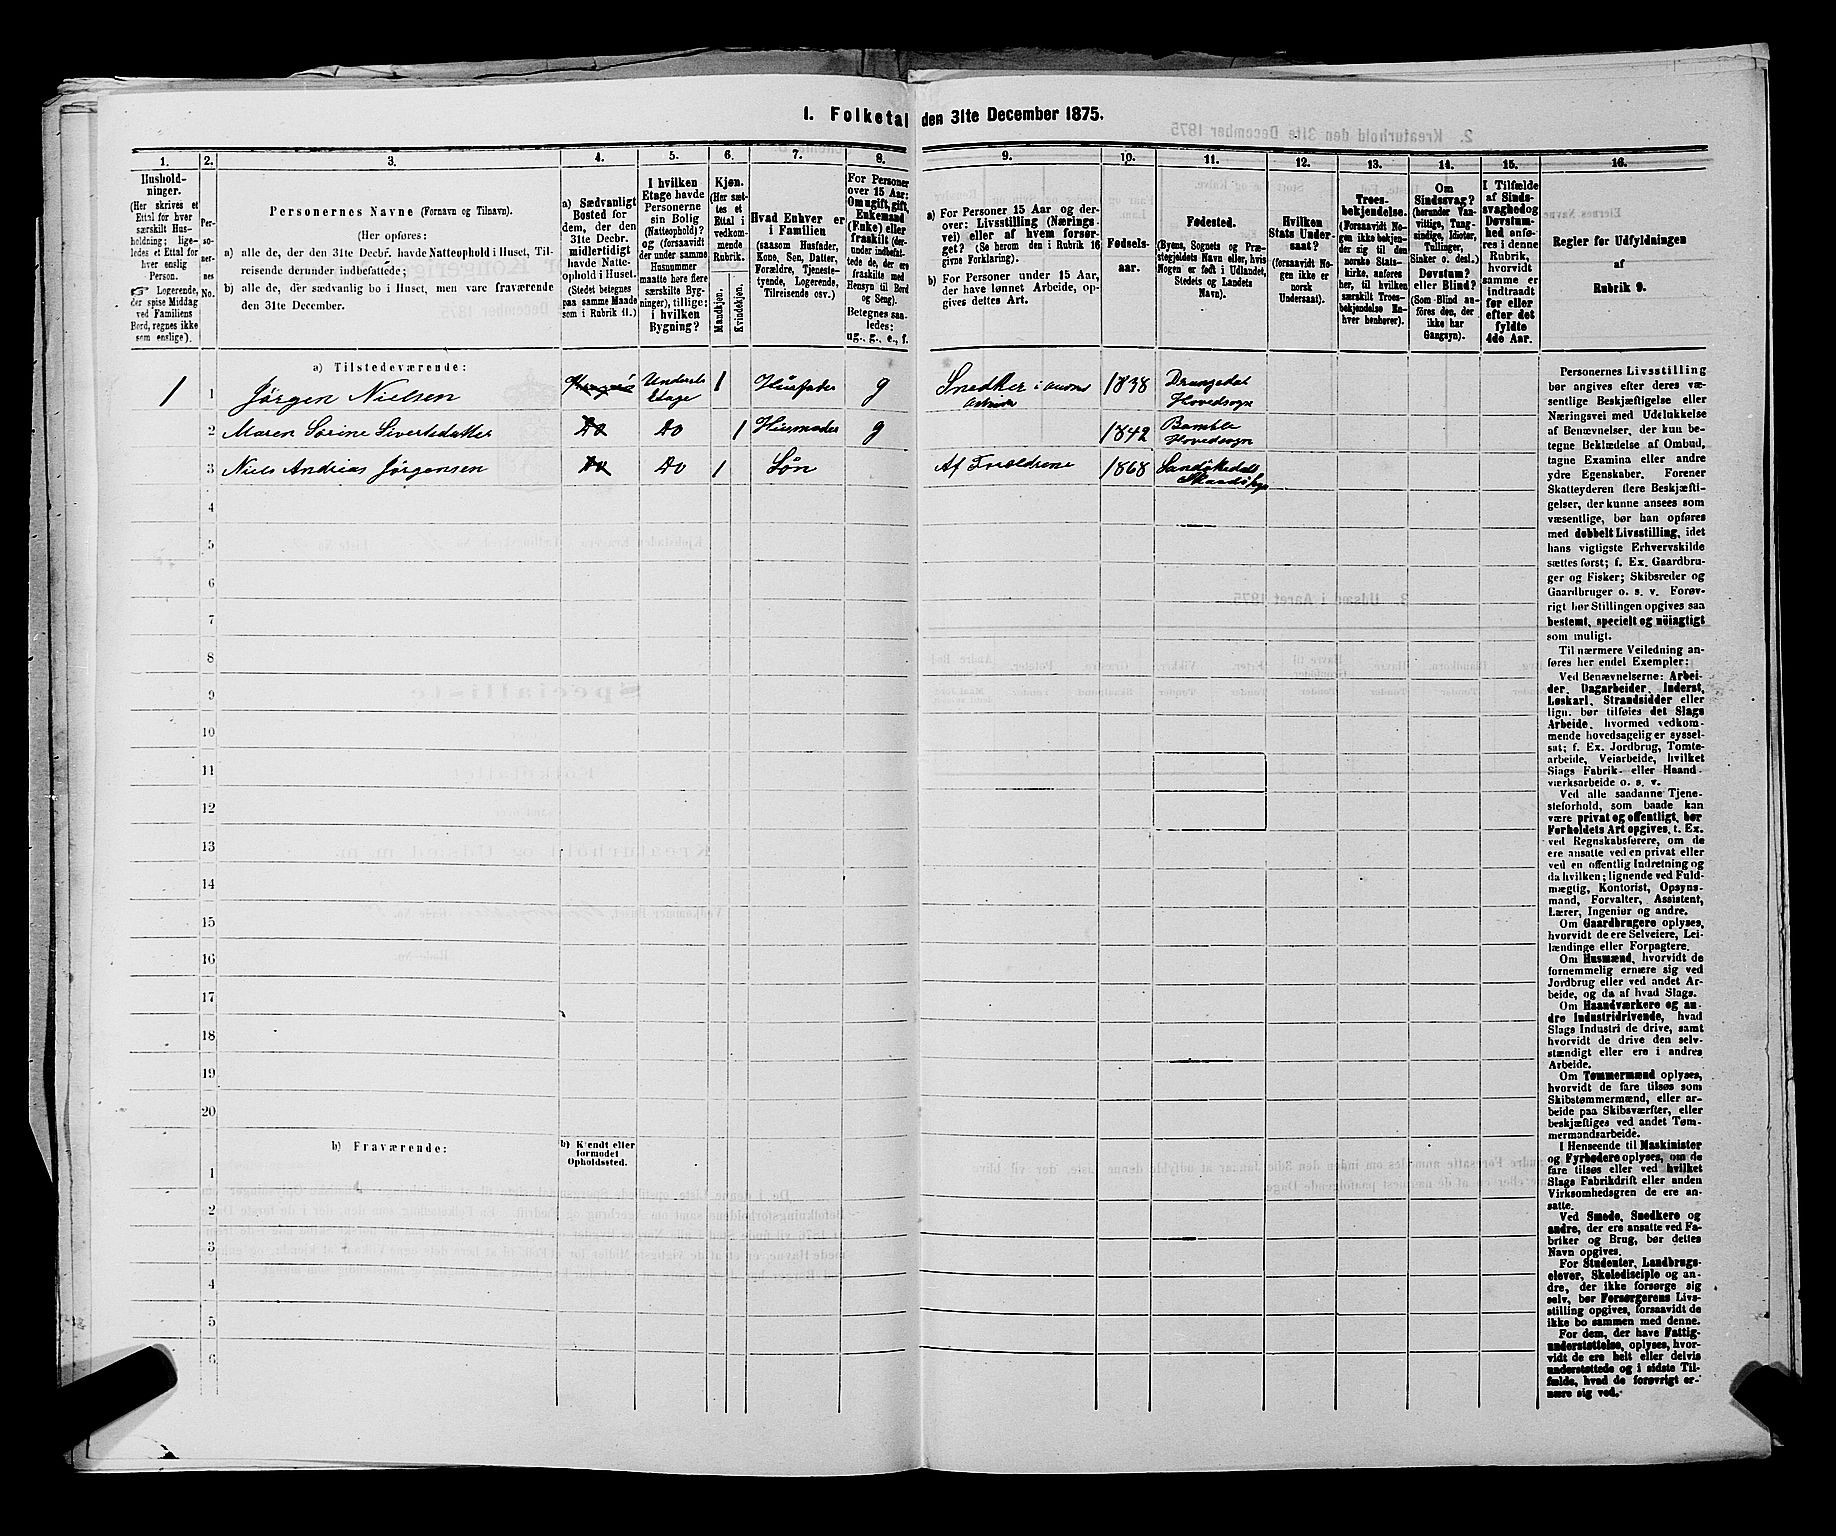 I. Folketal den 31te December 1875.
1.
2.
3.
4.
5.
6.
7.
8.
9.
10.
11.
12.
13.
14.
15.
16.
Hushold-
ninger.
(Her skrives et
Ettal for hver
særskilt Hus-
holdning; lige-
ledes et Ettal for
hver enslig
Person.
☞ Logerende,
der spise Middag
ved Familiens
Bord, regnes ikke
som enslige).
Per-
so-
ner-
nes
No.
Personernes Navne (Fornavn og Tilnavn).
(Her opføres:
a) alle de, der den 31te Decbr. havde Natteophold i Huset, Til-
reisende derunder indbefattede;
b) alle de, der sædvanlig bo i Huset, men vare fraværende
den 31te December.
a) Sædvanligt
Bosted for
dem, der den
31te Decbr.
midlertidigt
havde Natte-
ophold i Huset.
(Stedet betegnes
paa samme Maade
som i Rubrik 11.)
I hvilken
Etage havde
Personerne
sin Bolig
(Natteophold)?
og (forsaavidt
der under samme
Husnummer
maatte høre flere
særskilte Byg-
ninger), tillige:
i hvilken
Bygning?
Kjøn.
(Her sæt-
tes et
Ettal i
vedkom-
mende
Rubrik.
Mandkjøn.
Kvindekjøn.
Hvad Enhver er
i Familien
(saasom Husfader,
Kone, Søn, Datter,
Forældre, Tjeneste-
tyende, Logerende,
Tilreisende osv.)
For Personer
over 15 Aar:
Om ugift, gift,
Enkemand
(Enke) eller
fraskilt (der-
under indbefat-
tede de, der ere
fraskilte med
Hensyn til Bord
og Seng).
Betegnes saa-
ledes:
ug., g., e., f.
a) For Personer 15 Aar og der-
over: Livsstilling (Nærings-
vei) eller af hvem forsør-
get? (Se herom den i Rubrik 16
givne Forklaring).
b) For Personer under 15 Aar,
der have lønnet Arbeide, op-
gives dettes Art.
Fødsels-
aar.
Fødested.
(Byens, Sognets og Præ-
stegjeldets Navn eller, hvis
Nogen er født i Udlandet,
Stedets og Landets
Navn).
Hvilken
Stats Under-
saat?
(forsaavidt No-
gen ikke er
norsk
Undersaat).
Troes-
bekjendelse.
(Forsaavidt No-
gen ikke bekjen-
der sig til den
norske Stats-
kirke, anføres
her, til hvilken
særskilt Troes-
bekjendelse En-
hver henhører).
Om
Sindssvag?
(herunder Van-
vittige, Tung-
sindige, Idioter,
Tullinger,
Sinker o. desl.)
Døvstum?
eller Blind?
(Som Blind an-
føres den, der
ikke har
Gangsyn).
I Tilfælde
af Sinds-
svaghed og
Døvstum-
hed anfø-
res i denne
Rubrik,
hvorvidt
samme er
indtraadt
før eller
efter det
fyldte
4de Aar.
Regler for Udfyldningen
af
Rubrik 9.
a) Tilstedeværende:
1 1 Jørgen Nielsen Underste Etage 1 Husfader g Snedker i andres Arbeide 1838 Drangedal Hovedsogn
2 Maren Sorine Sivertsdatter Do Do 1 Husmoder g 1842 Bamble Hovedsogn
3 Niels Andreas Jørgensen Do Do 1 Søn Af Forældrene 1868
4
5
6
7
8
9
10
11
12
13
14
15
16
17
18
19
20
b) Fraværende:
b) Kjendt eller
formodet
Opholdssted.
1
2
3
4
5
6
Personernes Livsstilling
bør angives efter deres væ-
sentlige Beskjæftigelse eller
Næringsvei med Udelukkelse
af Benævnelser, der kun be-
tegne Beklædelse af Ombud,
tagne Examina eller andre
ydre Egenskaber. Forener
Skatteyderen flere Beskjæfti-
gelser, der kunne ansees som
væsentlige, bør han opføres
med dobbelt Livsstilling, idet
hans vigtigste Erhvervskilde
sættes først; f. Ex. Gaardbru-
ger og Fisker; Skibsreder og
Gaardbruger o. s. v. Forøv-
rigt bør Stillingen opgives saa
bestemt, specielt og nöiagtigt
som muligt.
Til nærmere Veiledning an-
føres her endel Exempler:
Ved Benævnelserne: Arbei-
der, Dagarbeider, Inderst,
Løskarl, Strandsidder eller
lign. bør tilføies det Slags
Arbeide, hvormed vedkom-
mende hovedsagelig er syssel-
sat; f. Ex. Jordbrug, Tomte-
arbeide, Veiarbeide, hvilket
Slags Fabrik- eller Haand-
værksarbeide o. s. v.
Ved alle saadanne Tjene-
steforhold, som baade kan
være privat og offentligt, bør
Forholdets Art opgives, t. Ex.
ved Regnskabsførere, om de
ere ansatte ved en privat eller
ved en offentlig Indretning og
da hvilken; lignende ved Fuld-
mægtig, Kontorist, Opsyns-
mand, Forvalter, Assistent,
Lærer, Ingeniør og andre.
Om Gaardbrugere oplyses,
hvorvidt de ere Selveiere, Lei-
lændinge eller Forpagtere.
Om Husmænd, hvorvidt de
fornemmelig ernære sig ved
Jordbrug eller ved andet Ar-
beide, og da af hvad Slags.
Om Haandværkere og an-
dre Industridrivende, hvad
Slags Industri de drive, samt
hvorvidt de drive den selv-
stændigt eller ere i andres
Arbeide.
Om Tømmermænd oplyses,
hvorvidt de fare tilsøs som
Skibstømmermænd, eller ar-
beide paa Skibsværfter, eller
beskjæftiges ved andet Tøm-
mermandsarbeide.
I Henseende til Maskinister
og Fyrbødere oplyses, om de
fare tilsøs eller ved hvilket
Slags Fabrikdrift eller anden
Virksomhedsgren de ere an-
satte.
Ved Smede, Snedkere og
andre, der ere ansatte ved Fa-
briker og Brug, bør dettes
Navn opgives.
For Studenter, Landbrugs-
elever, Skoledisciple og an-
dre, der ikke forsørge sig
selv, bør Forsørgerens Livs-
stilling opgives, forsaavidt de
ikke bo sammen med denne.
For dem, der have Fattig-
understøttelse, oplyses, hvor-
vidt de ere helt eller delvis
understøttede og i sidste Til-
fælde, hvad de forøvrigt er-
nære sig ved.